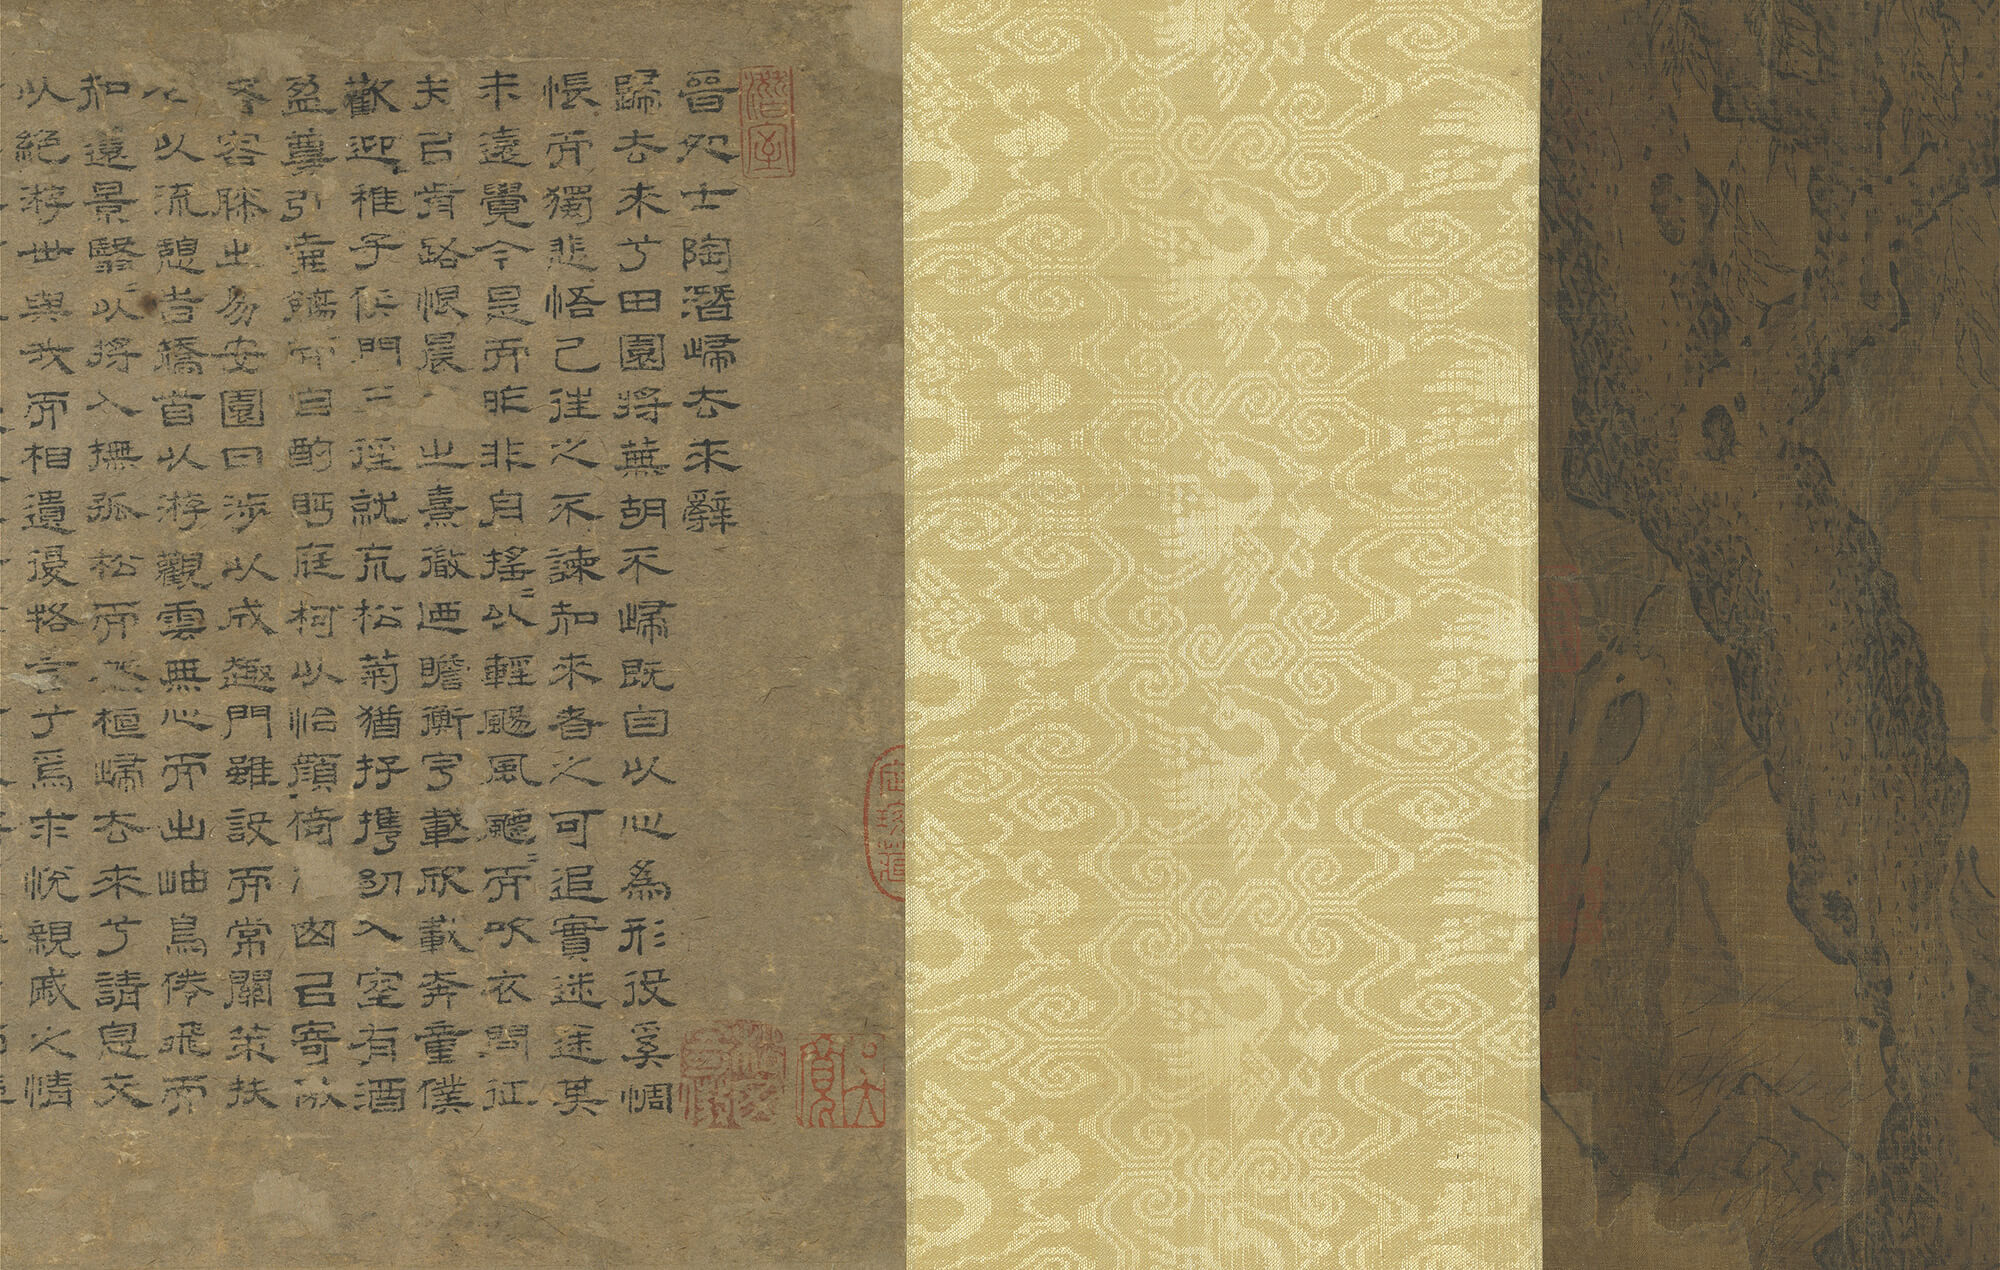 晉処士陶潛歸去來辭
歸去來兮田園將蕪胡不歸既自以心為形役奚惆
悵而獨悲悟已往之不諫知來者之可追實迷途其
未遠覺今是而昨非舟搖〻以輕颺風飄〻而吹衣問征
夫已前路恨晨之熹微迺瞻衡宇載欣載奔童僕
歡迎稚子候門三逕就荒松菊猶存攜幼入室有酒
盈尊引壺觴而自酌眄庭柯以怡顏倚窗已寄傲
容膝之易安園日涉以成趣門雖設而常關策扶
以流憩時矯首以游觀雲無心而出岫鳥倦飛而
知還景翳〻以將入撫孤松而盤桓歸去來兮請息交
以絕游世與我而相遺復駕言兮焉求悅親戚之情